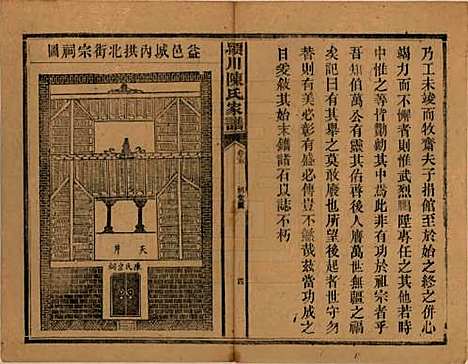 乃工未竣而牧齋夫子捐館至於始之終之併心
竭力而不懈者則惟武烈鵬陞專任之他若時
中惟之等皆勷勤其中此為能對於祖宗者乎
吾知伯萬公有靈其佑啓後人膺萬世無疆之福
矣記曰有其舉之莫敢廢也所望後起者世世勿
替則有美必彰有盛必傳豈不無哉茲當功成之
日爰敘其始末鐫諸石以誌不朽
潁川陳氏家譜
四
益邑城內拱北街宗祠圖
天井
陳氏宗祠